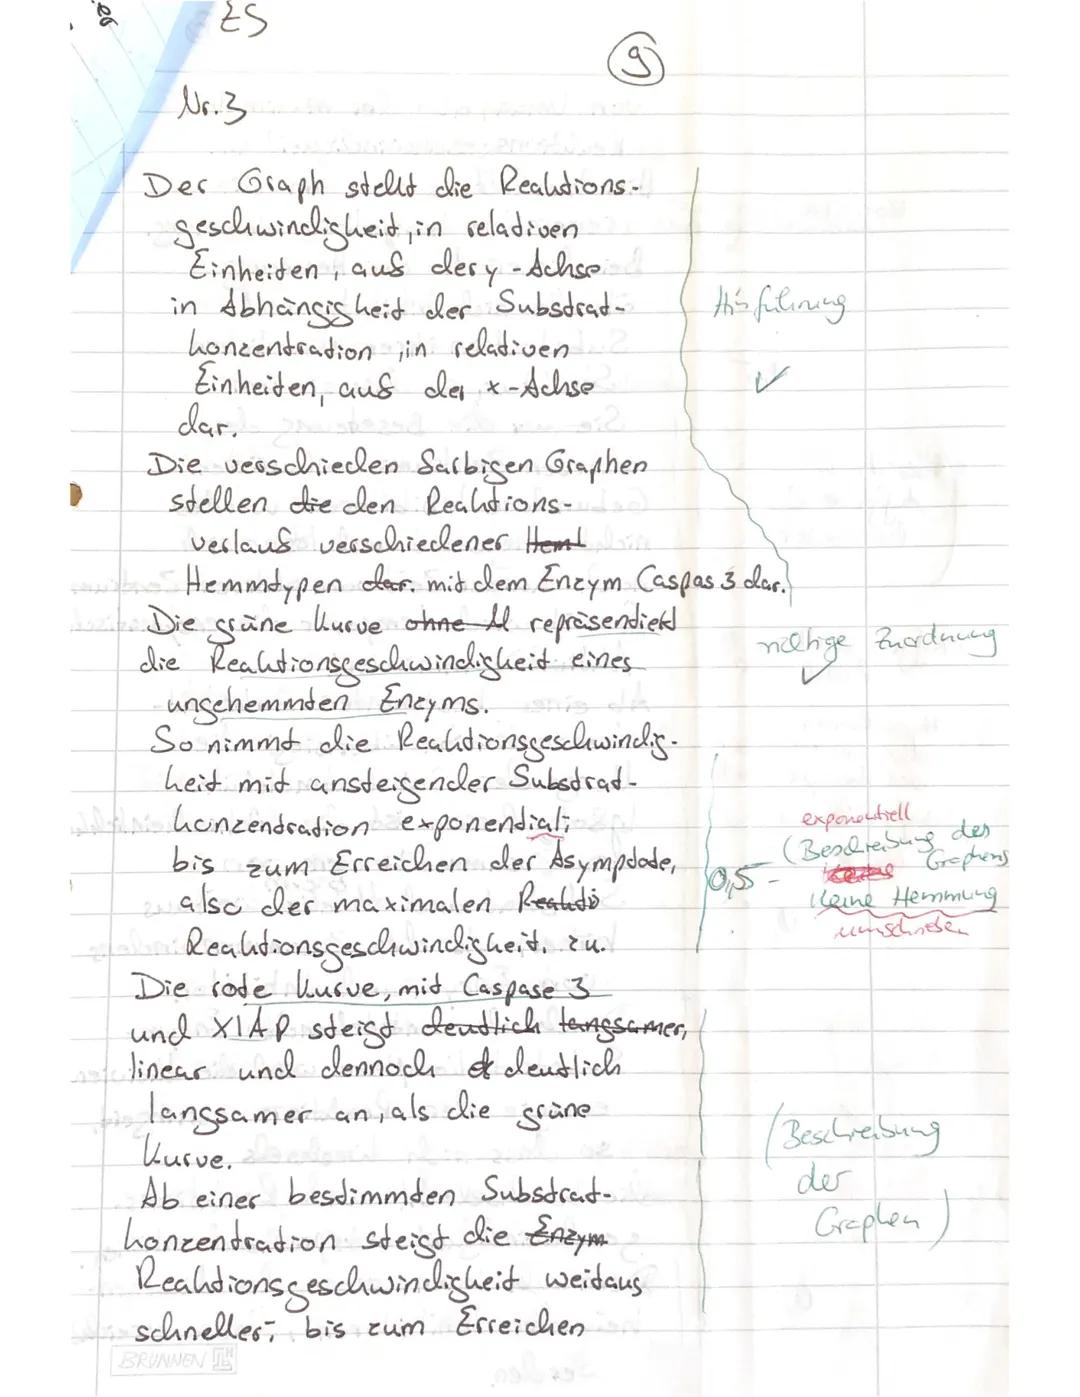 ES
9
Nr. 3
Der Graph stellt die Reaktions-
geschwindigkeit, in relativen
Einheiten, auf der y-Achse
in Abhängigkeit der Substrat-
konzentration, in relativen
Einheiten, auf der x-Achse
dar.
Hinführung
✓
Die verschieden farbigen Graphen
stellen die den Reaktions-
verlauf verschiedener Heml
Hemmtypen dar. mit dem Enzym Caspas 3 dar.
Die grüne Kurve ohne M repräsentiert
die Reaktionsgeschwindigkeit eines
ungehemmten Enzyms.
richtige Zuordnung
✓
So nimmt die Reaktionsgeschwindig-
keit mit ansteigender Substrat-
konzentration exponential;
bis zum Erreichen der Asymptode,
also der maximalen Reakti
Reaktionsgeschwindigkeit. zu.
exponentiell
(Beschreibung des
Graphens
0,5 -
Keine Hemmung
umschrieben
Die rote Kurve, mit Caspase 3
und XIAP steigt deutlich langsamer,
linear und dennoch deutlich
langsamer an, als die grüne
Kurve.
Ab einer bestimmten Substrat-
konzentration steigt die Enzym
Reaktionsgeschwindigkeit weitaus
schneller; bis zum Erreichen
(Beschreibung
der
Graphen)
BRUNNEN